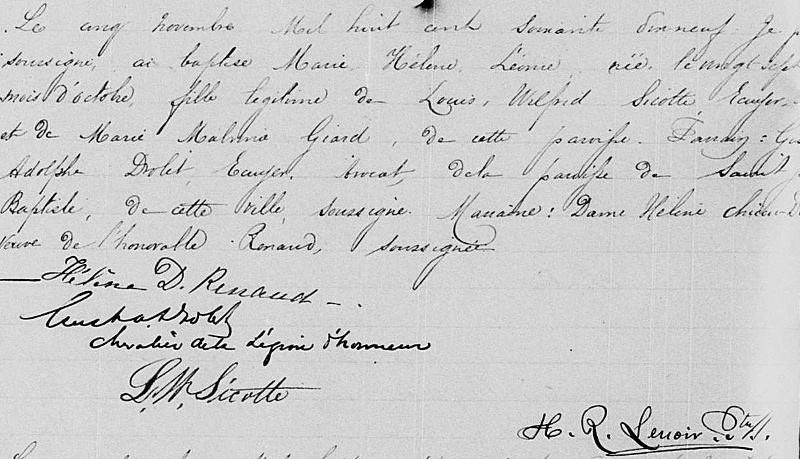 Le cinq novembre Mil huit cent soixante dix neuf Je
soussigné, ai baptisé Marie, Hélène, Léonie, née, le vingt sept
mois d'octobre, fille légitime de Louis, Wilfrid Sicotte Ecuyer,
et de Marie Malvina Giard, de cette paroisse. Parrain: Gus
Adolphe Drolet, Ecuyer, Avocat, de la paroisse de Saint J
Baptiste, de cette ville, soussigné. Marraine: Dame Hélène
veuve de l'honorable Renaud, soussignée
Hélène D. Renaud
Gust A Drolet
chevalier de la Légion d'honneur
L. W. Sicotte
H. R. Lenoir Ptre S.S.